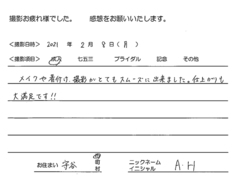 撮影お疲れ様でした。 感想をお願いいたします。
<撮影日時> 2021 年 2 月 8 日 (月)
<撮影項目> 成人 七五三 ブライダル 記念 その他
メイクや着付け、撮影がとてもスムーズに出来ました。仕上がりも
大満足です!!
お住まい 守谷 市 村 ニックネーム イニシャル A・H